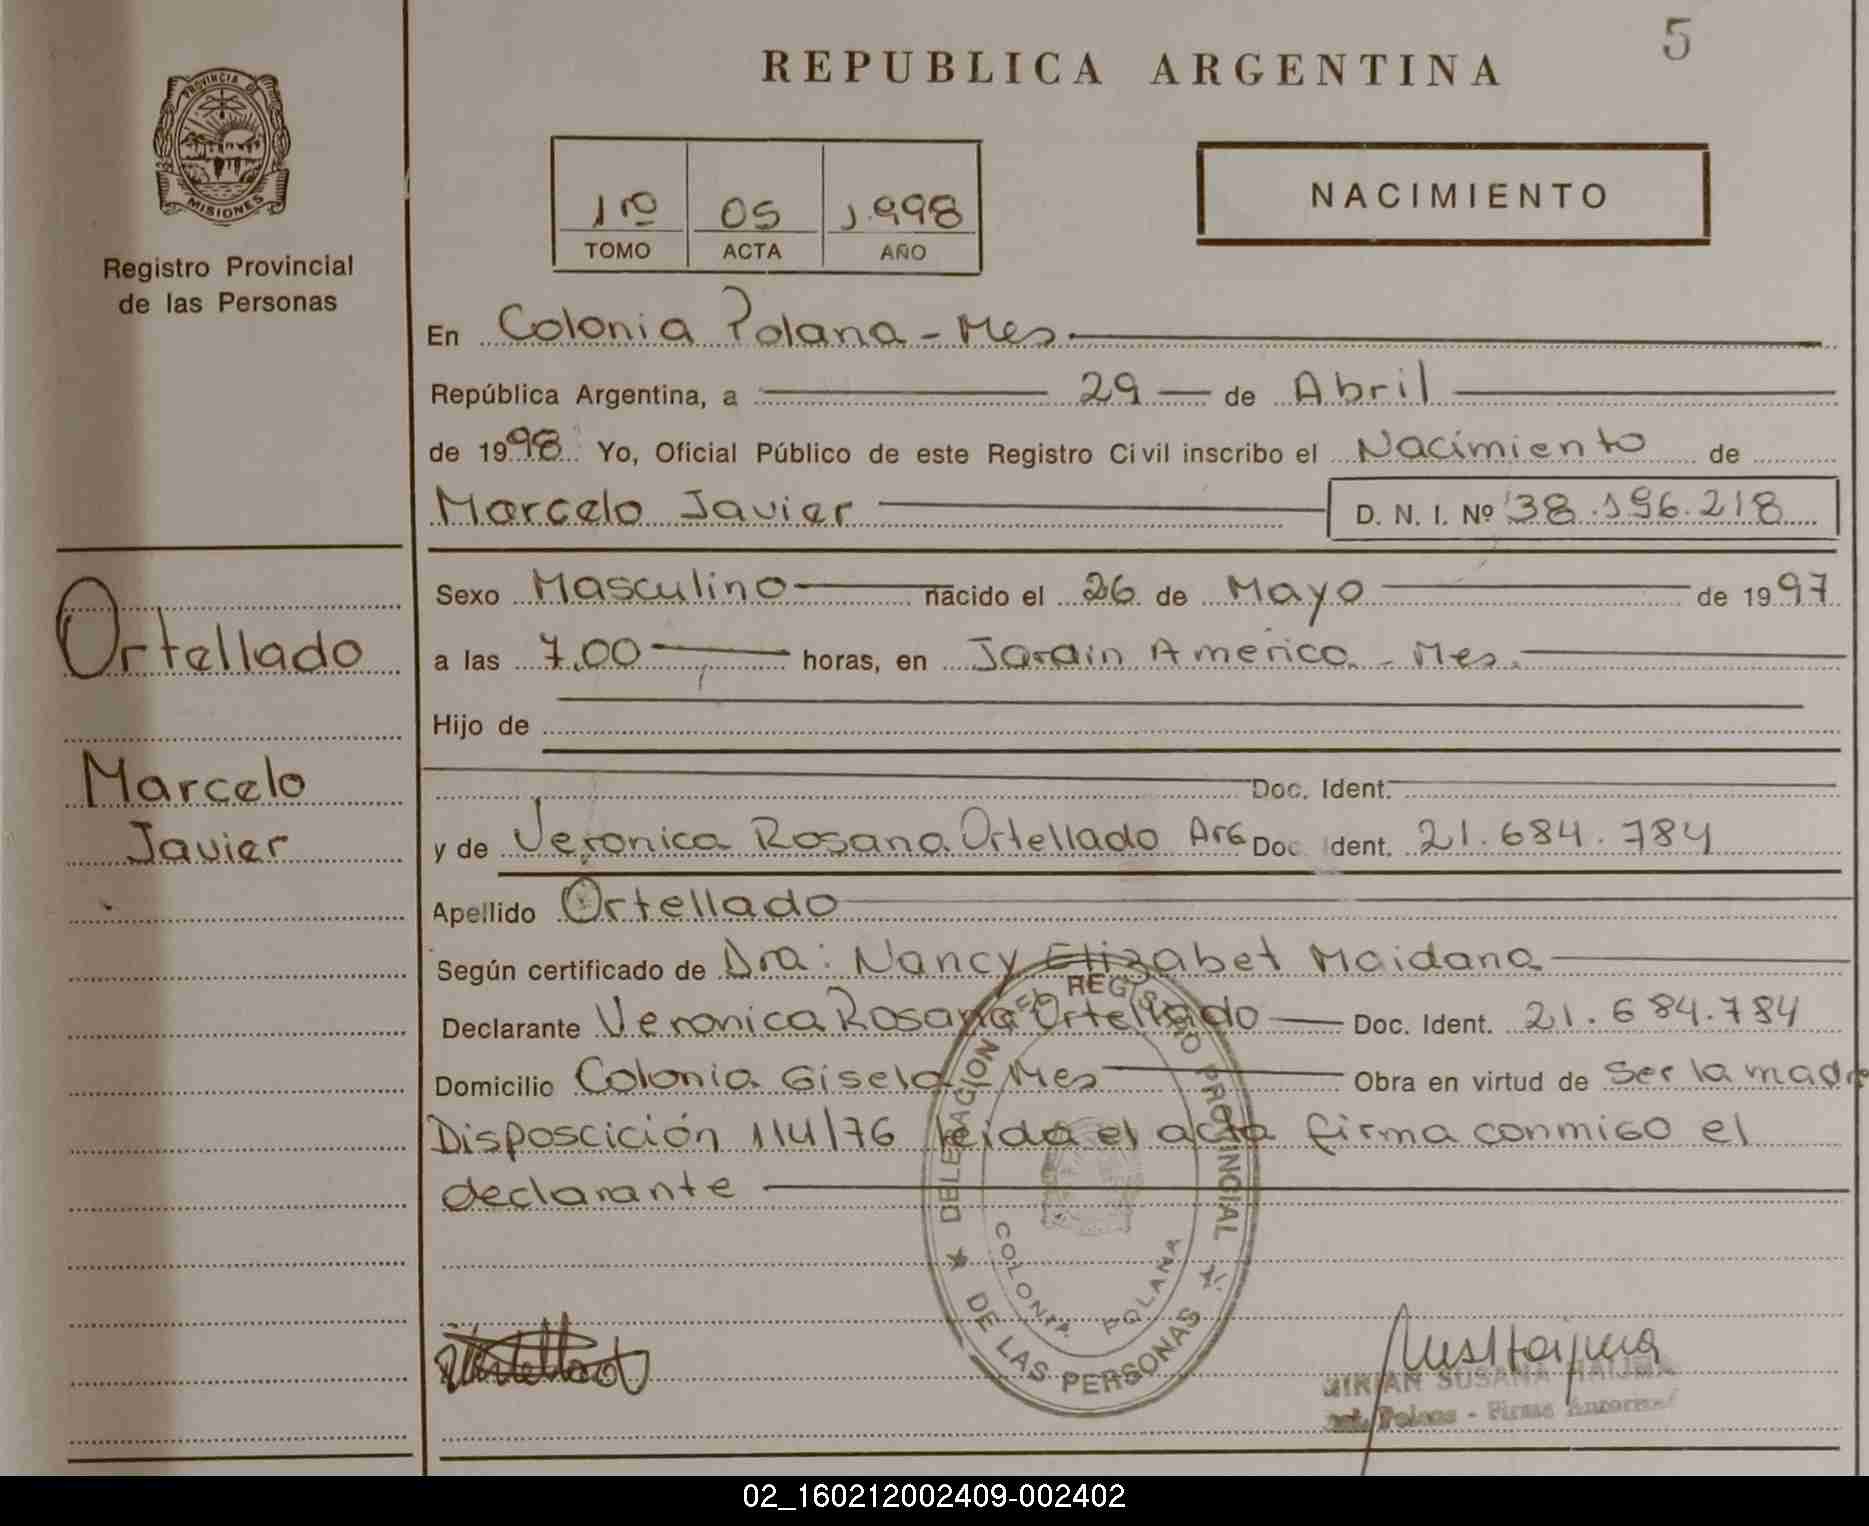 5
REPUBLICA ARGENTINA
PROVINCIA DE
MISIONES
Registro Provincial
de las Personas
1ro 05 1.998
TOMO ACTA AÑO
NACIMIENTO
En Colonia Polana - Mes
República Argentina, a 29 de Abril
de 1998 Yo, Oficial Público de este Registro Civil inscribo el Nacimiento de
Marcelo Javier D. N. I. Nº 38.196.218
Sexo Masculino nacido el 26 de Mayo de 1997
a las 7.00 horas, en Jardin America - Mes.
Hijo de
Doc. Ident.
y de Veronica Rosana Ortellado Arg Doc Ident. 21.684.784
Apellido Ortellado
Según certificado de Dra: Nancy Elizabet Maidana
Declarante Veronica Rosana Ortellado Doc. Ident. 21.684.784
Domicilio Colonia Gisela - Mes Obra en virtud de Ser la madre
Disposcición 114/76 leida el acta firma conmigo el
declarante
Ortellado
Marcelo
Javier
DELEGACION DEL REGISTRO PROVINCIAL
DE LAS PERSONAS
COLONIA POLANA
MIRIAN SUSANA
02_160212002409-002402